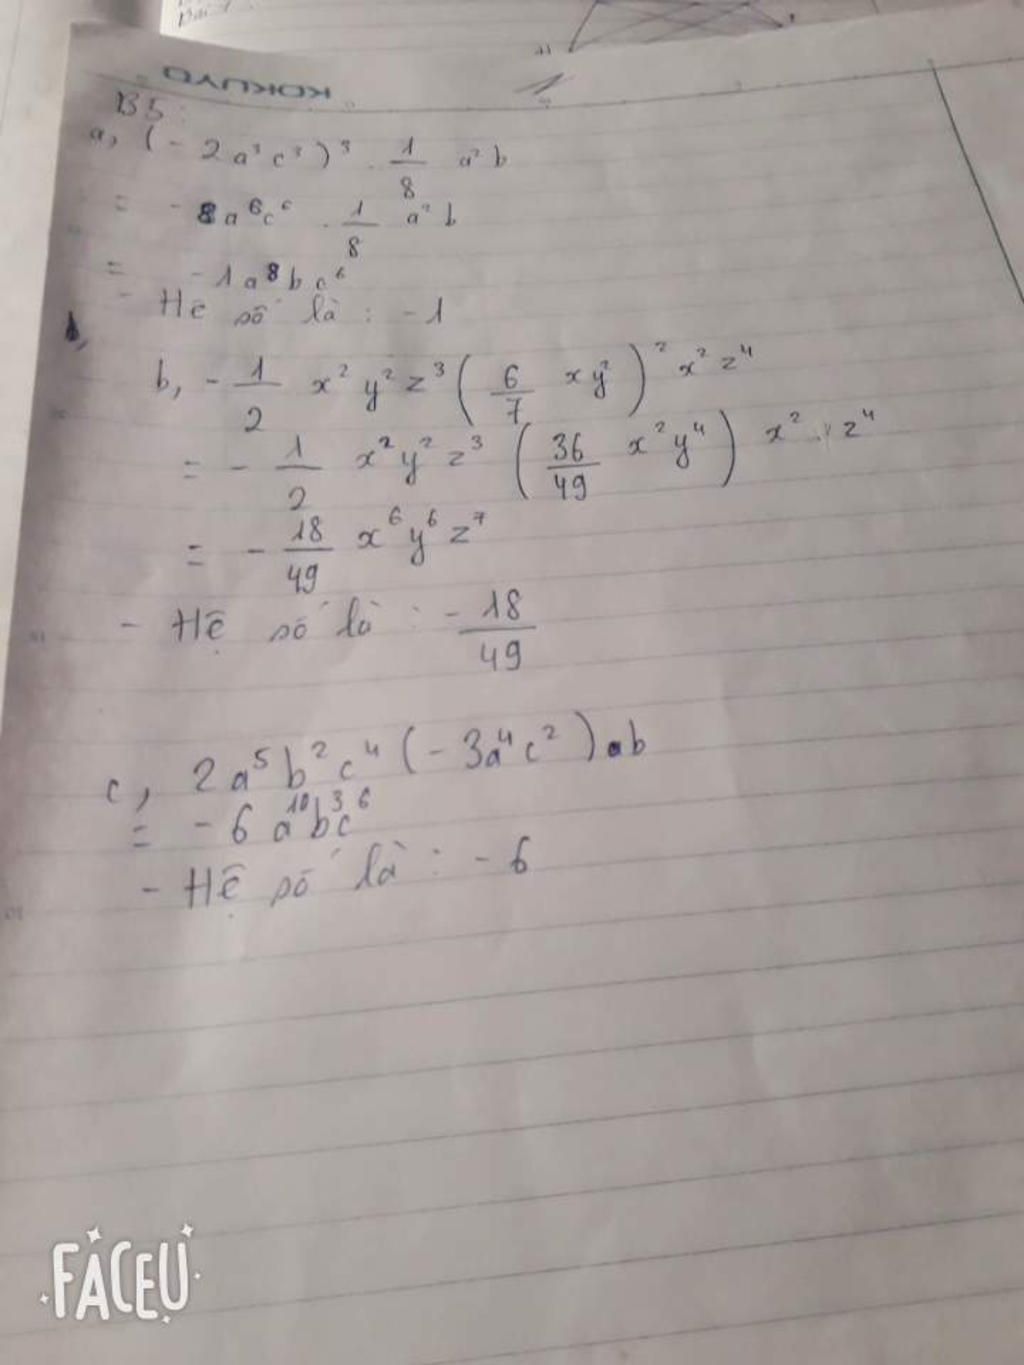 Bài 1
KOKUYO
B5:
a, (- 2a³c³)³ . 1/8 a²b
= - 8a⁶c⁶ . 1/8 a²b
= - 1a⁸bc⁶
- Hệ số là : - 1
b,
b, - 1/2 x²y²z³ (6/7 xy²)² x²z⁴
= - 1/2 x²y²z³ (36/49 x²y⁴) x² . z⁴
= - 18/49 x⁶y⁶z⁷
- Hệ số là : - 18/49
c, 2a⁵b²c⁴ (- 3a⁴c²) ab
= - 6a¹⁰b³c⁶
- Hệ số là : - 6
FACEU